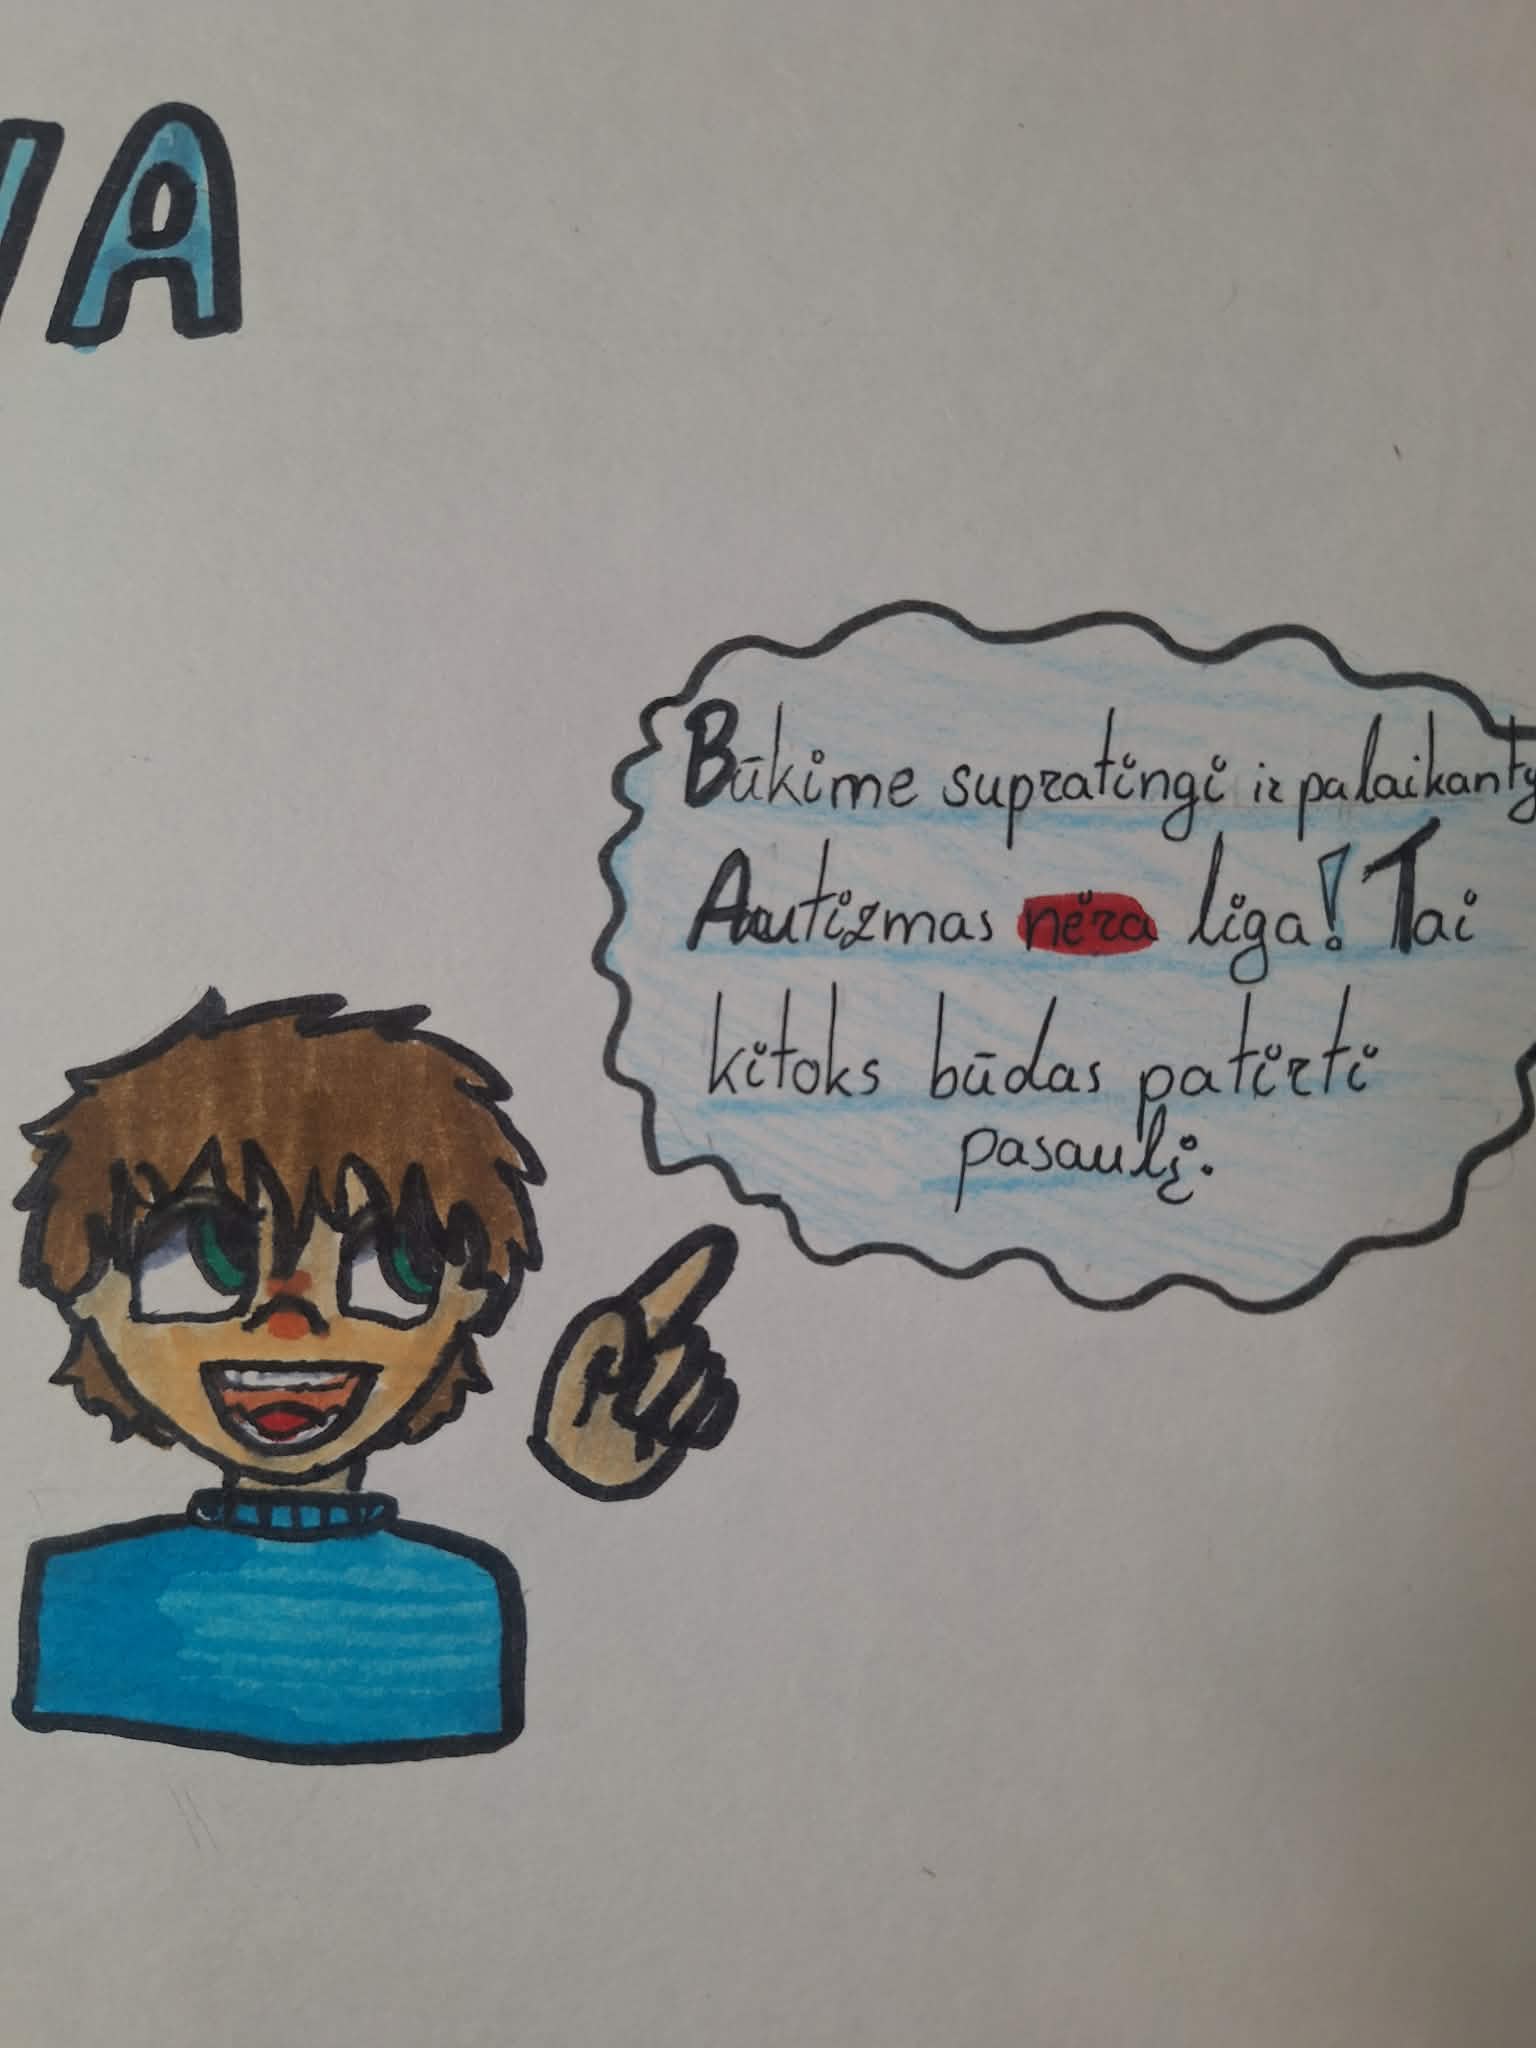 VA
Būkime supratingi ir palaikanty
Autizmas nėra liga! Tai
kitoks būdas patirti
pasaulį.